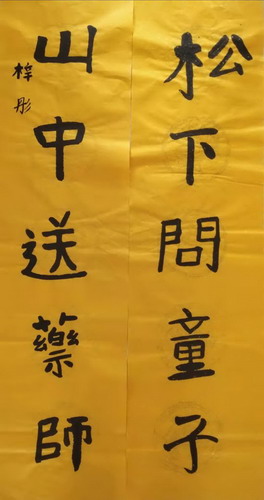 松下問童子
山中送藥師
梓彤